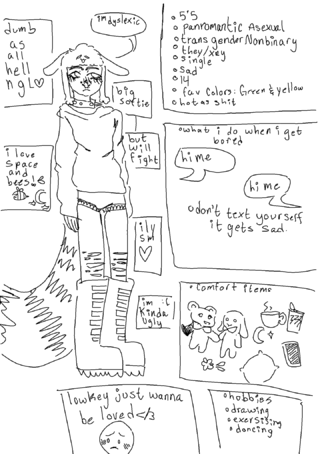 im dyslexic
dumb
as
all
hell
ngl♡
big
softie
but
will
fight
i love
space
and
bees!
ily
sm
♡
im :(
Kinda
ugly
lowkey just wanna
be loved</3
•5'5
•panromantic Asexual
•transgender Nonbinary
•they/xey
•single
•sad
•14
•fav colors: Green & yellow
•hot as shit
•what i do when i get
bored
hi me
hi me
•don't text yourself
it gets sad.
•comfort items
•hobbies
•drawing
•exersising
•dancing